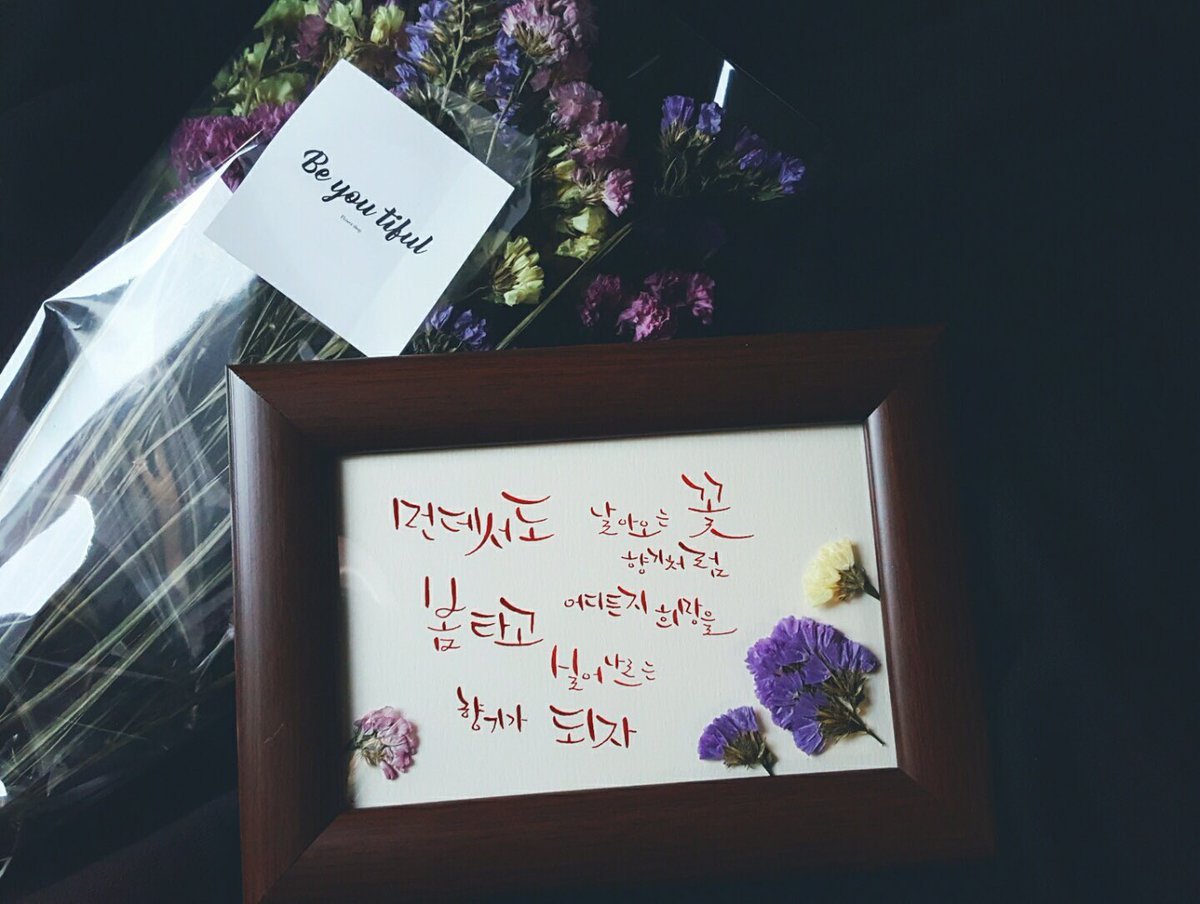 Be you tiful
Flower shop
먼데서도 날아오는 꽃
향기처럼
봄타고 어디든지 희망을
실어나르는
향기가 되자